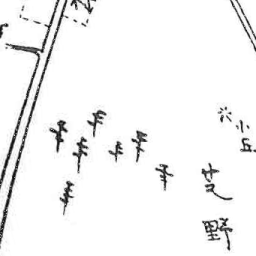 小丘
芝野